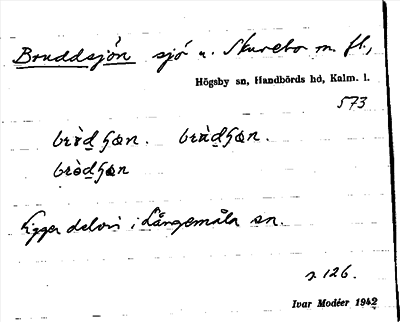 Bruddsjön sjö u. Skurebo m. fl.,
Högsby sn, Handbörds hd, Kalm. l.
573
Ligger delvis i Långemåla sn.
s. 126.
Ivar Modéer 1942